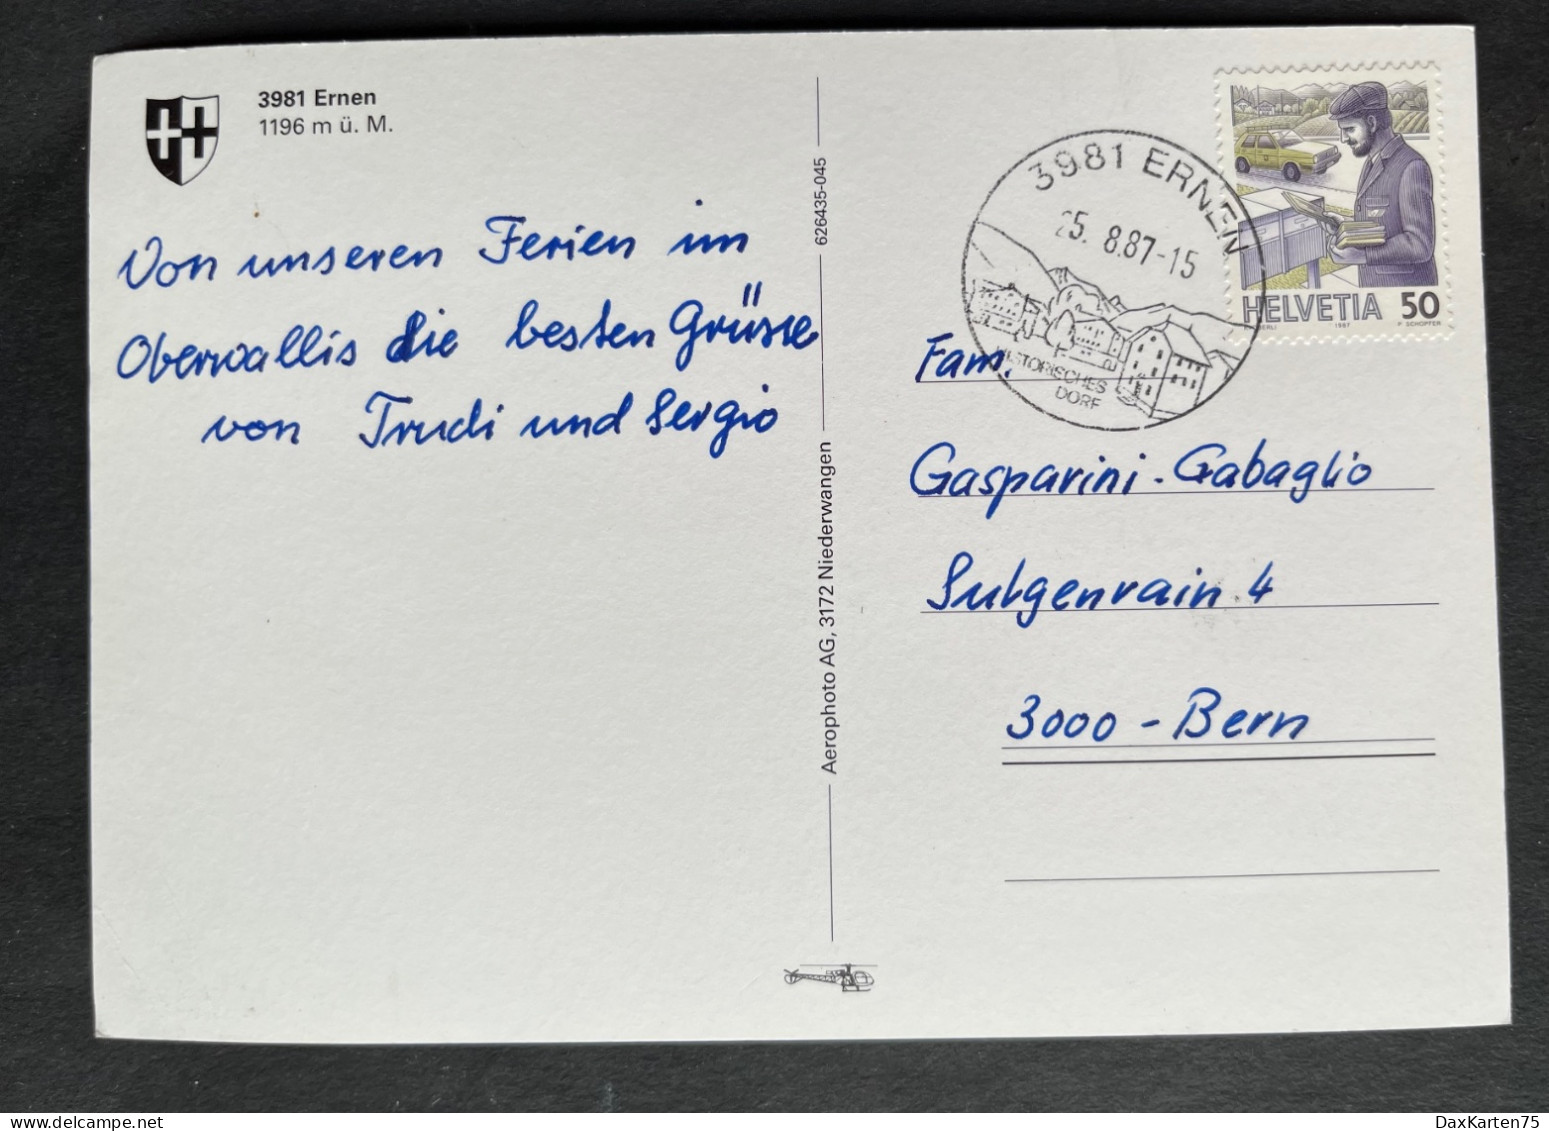 3981 Ernen
1196 m ü. M.
Von unseren Ferien im
Oberwallis die besten Grüsse
von Trudi und Sergio
626435-045
Aerophoto AG, 3172 Niederwangen
3981 ERNEN
25. 8.87-15
HISTORISCHES
DORF
HELVETIA 50
1987 P. SCHOPFER
Fam.
Gasparini-Gabaglio
Sulgenrain 4
3000 - Bern
DaxKarten75